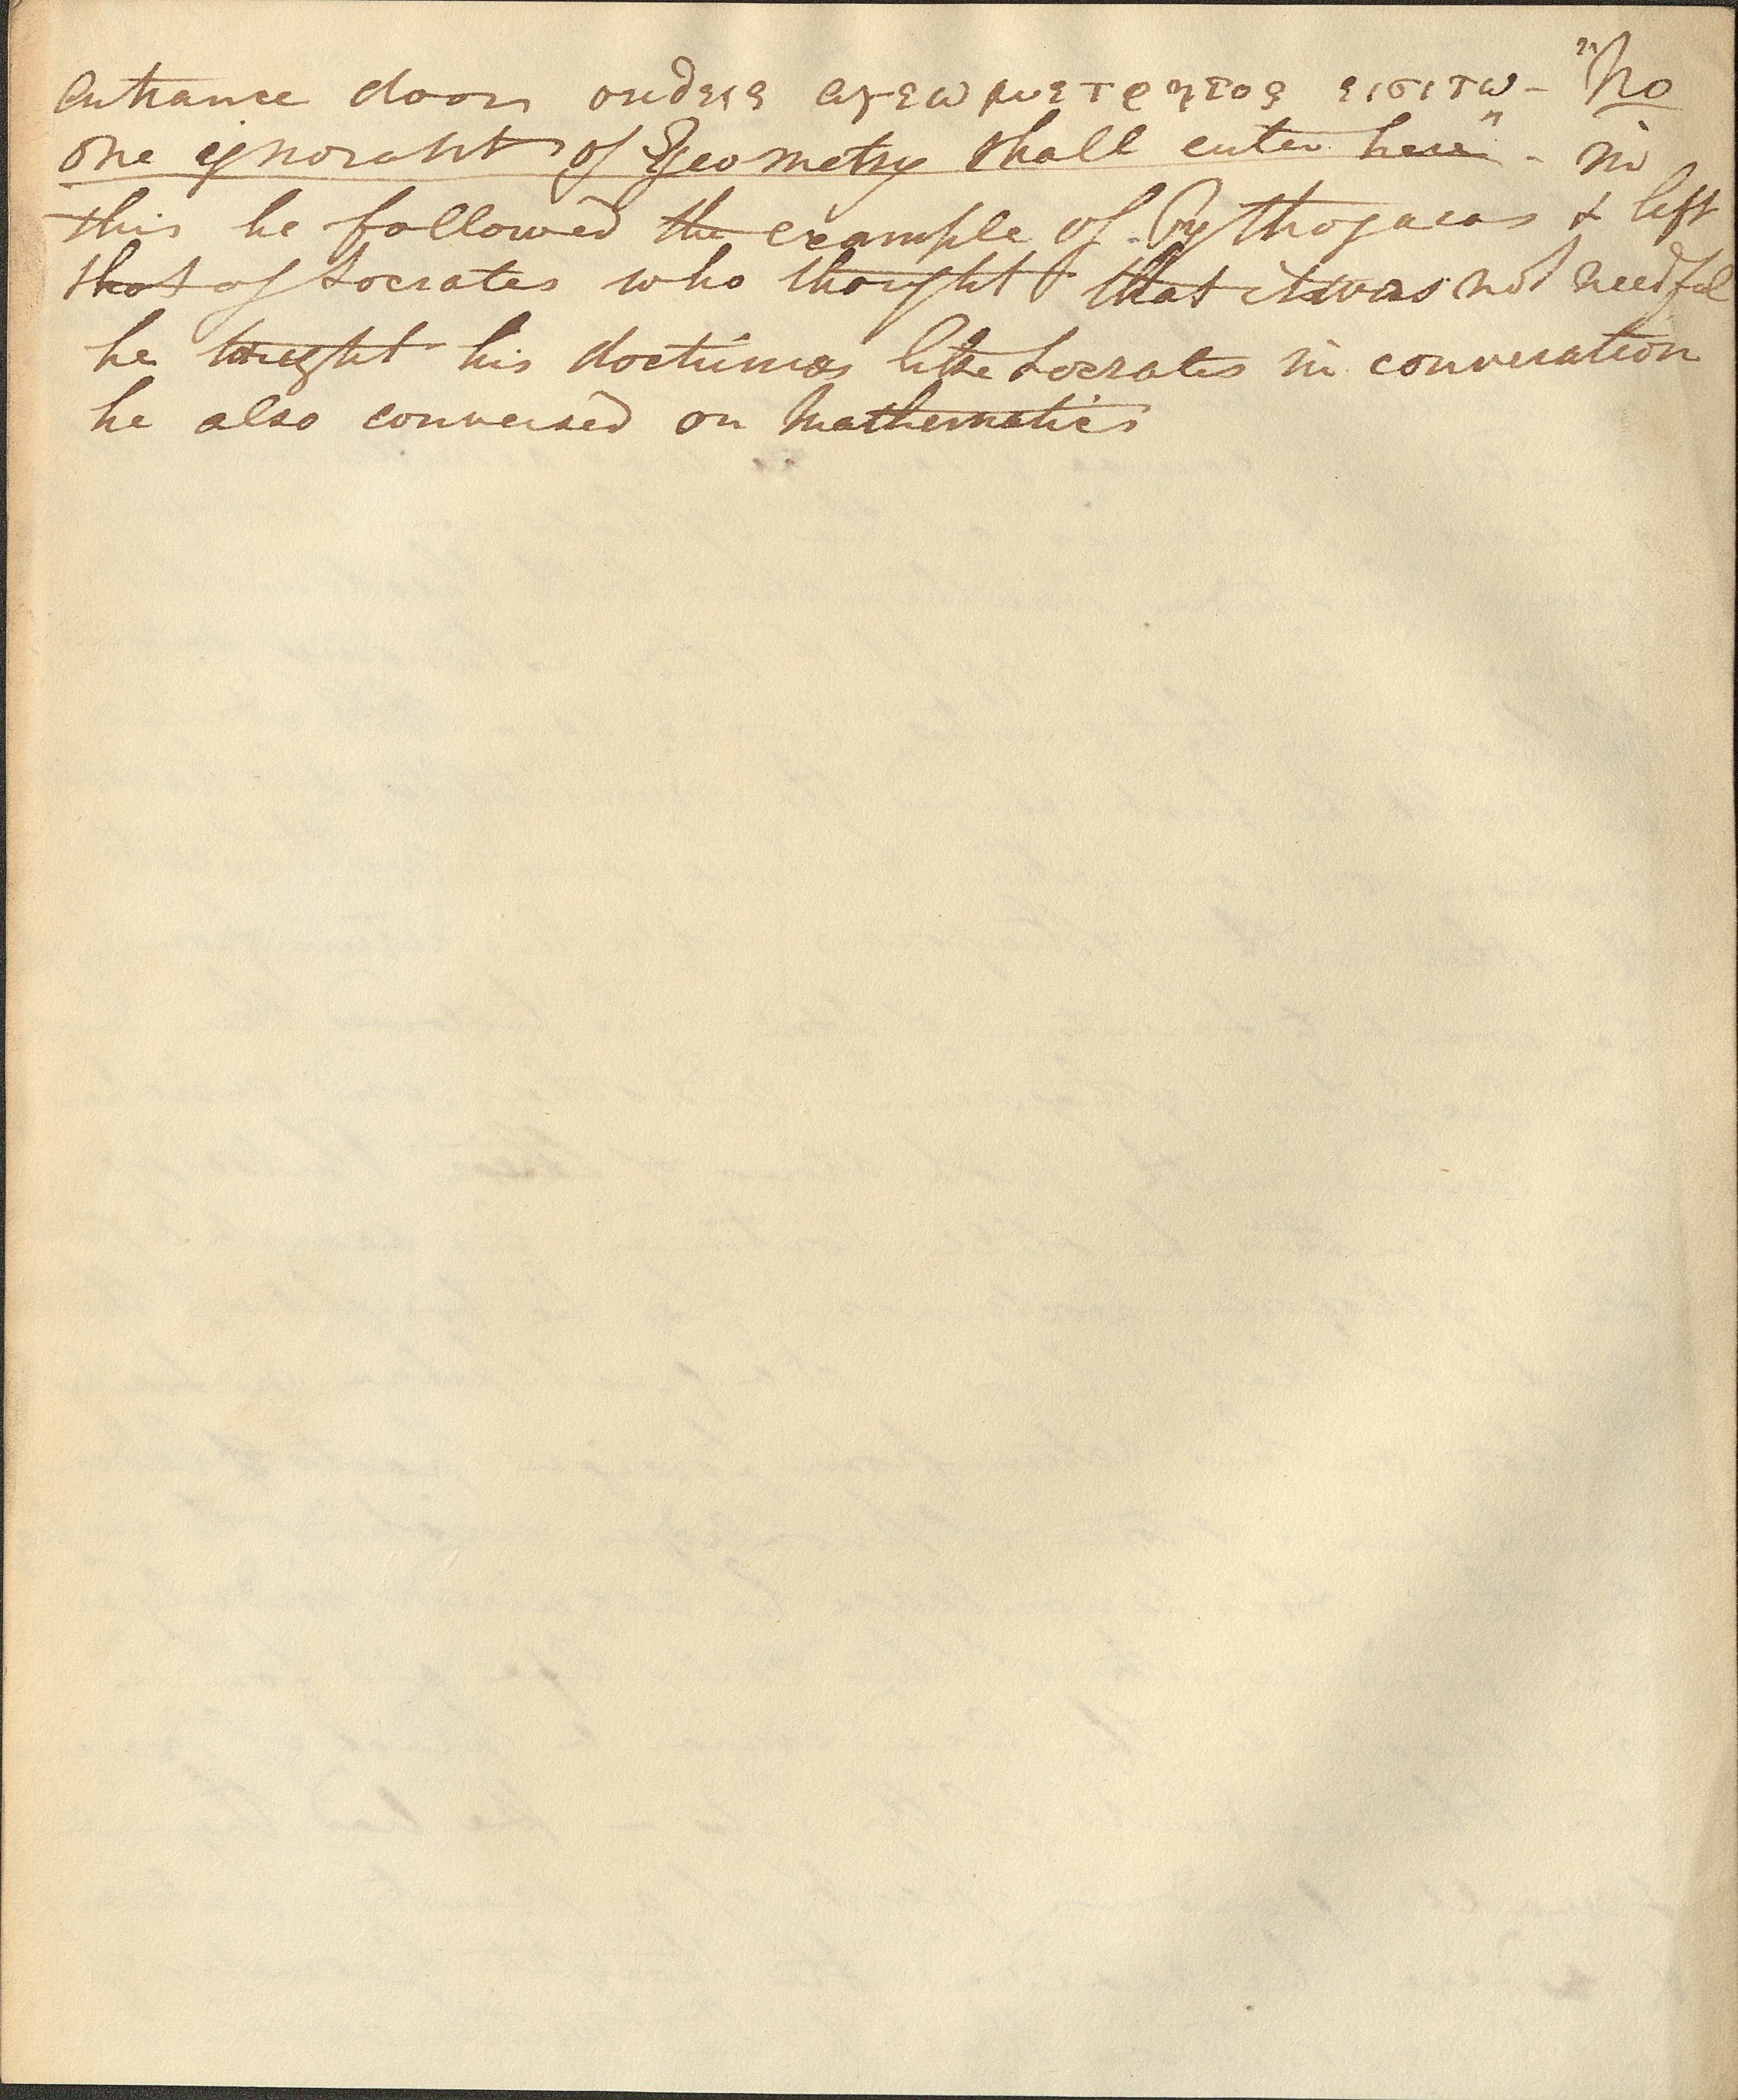 entrance door ουδεις αγεωμετρητος εισιτω - "No
one ignorant of Geometry shall enter here" - in
this he followed the example of Pythogaeas & left
that of Socrates who thought that it was not needful
he taught his doctrines like Socrates in conversation
he also conversed on Mathematics